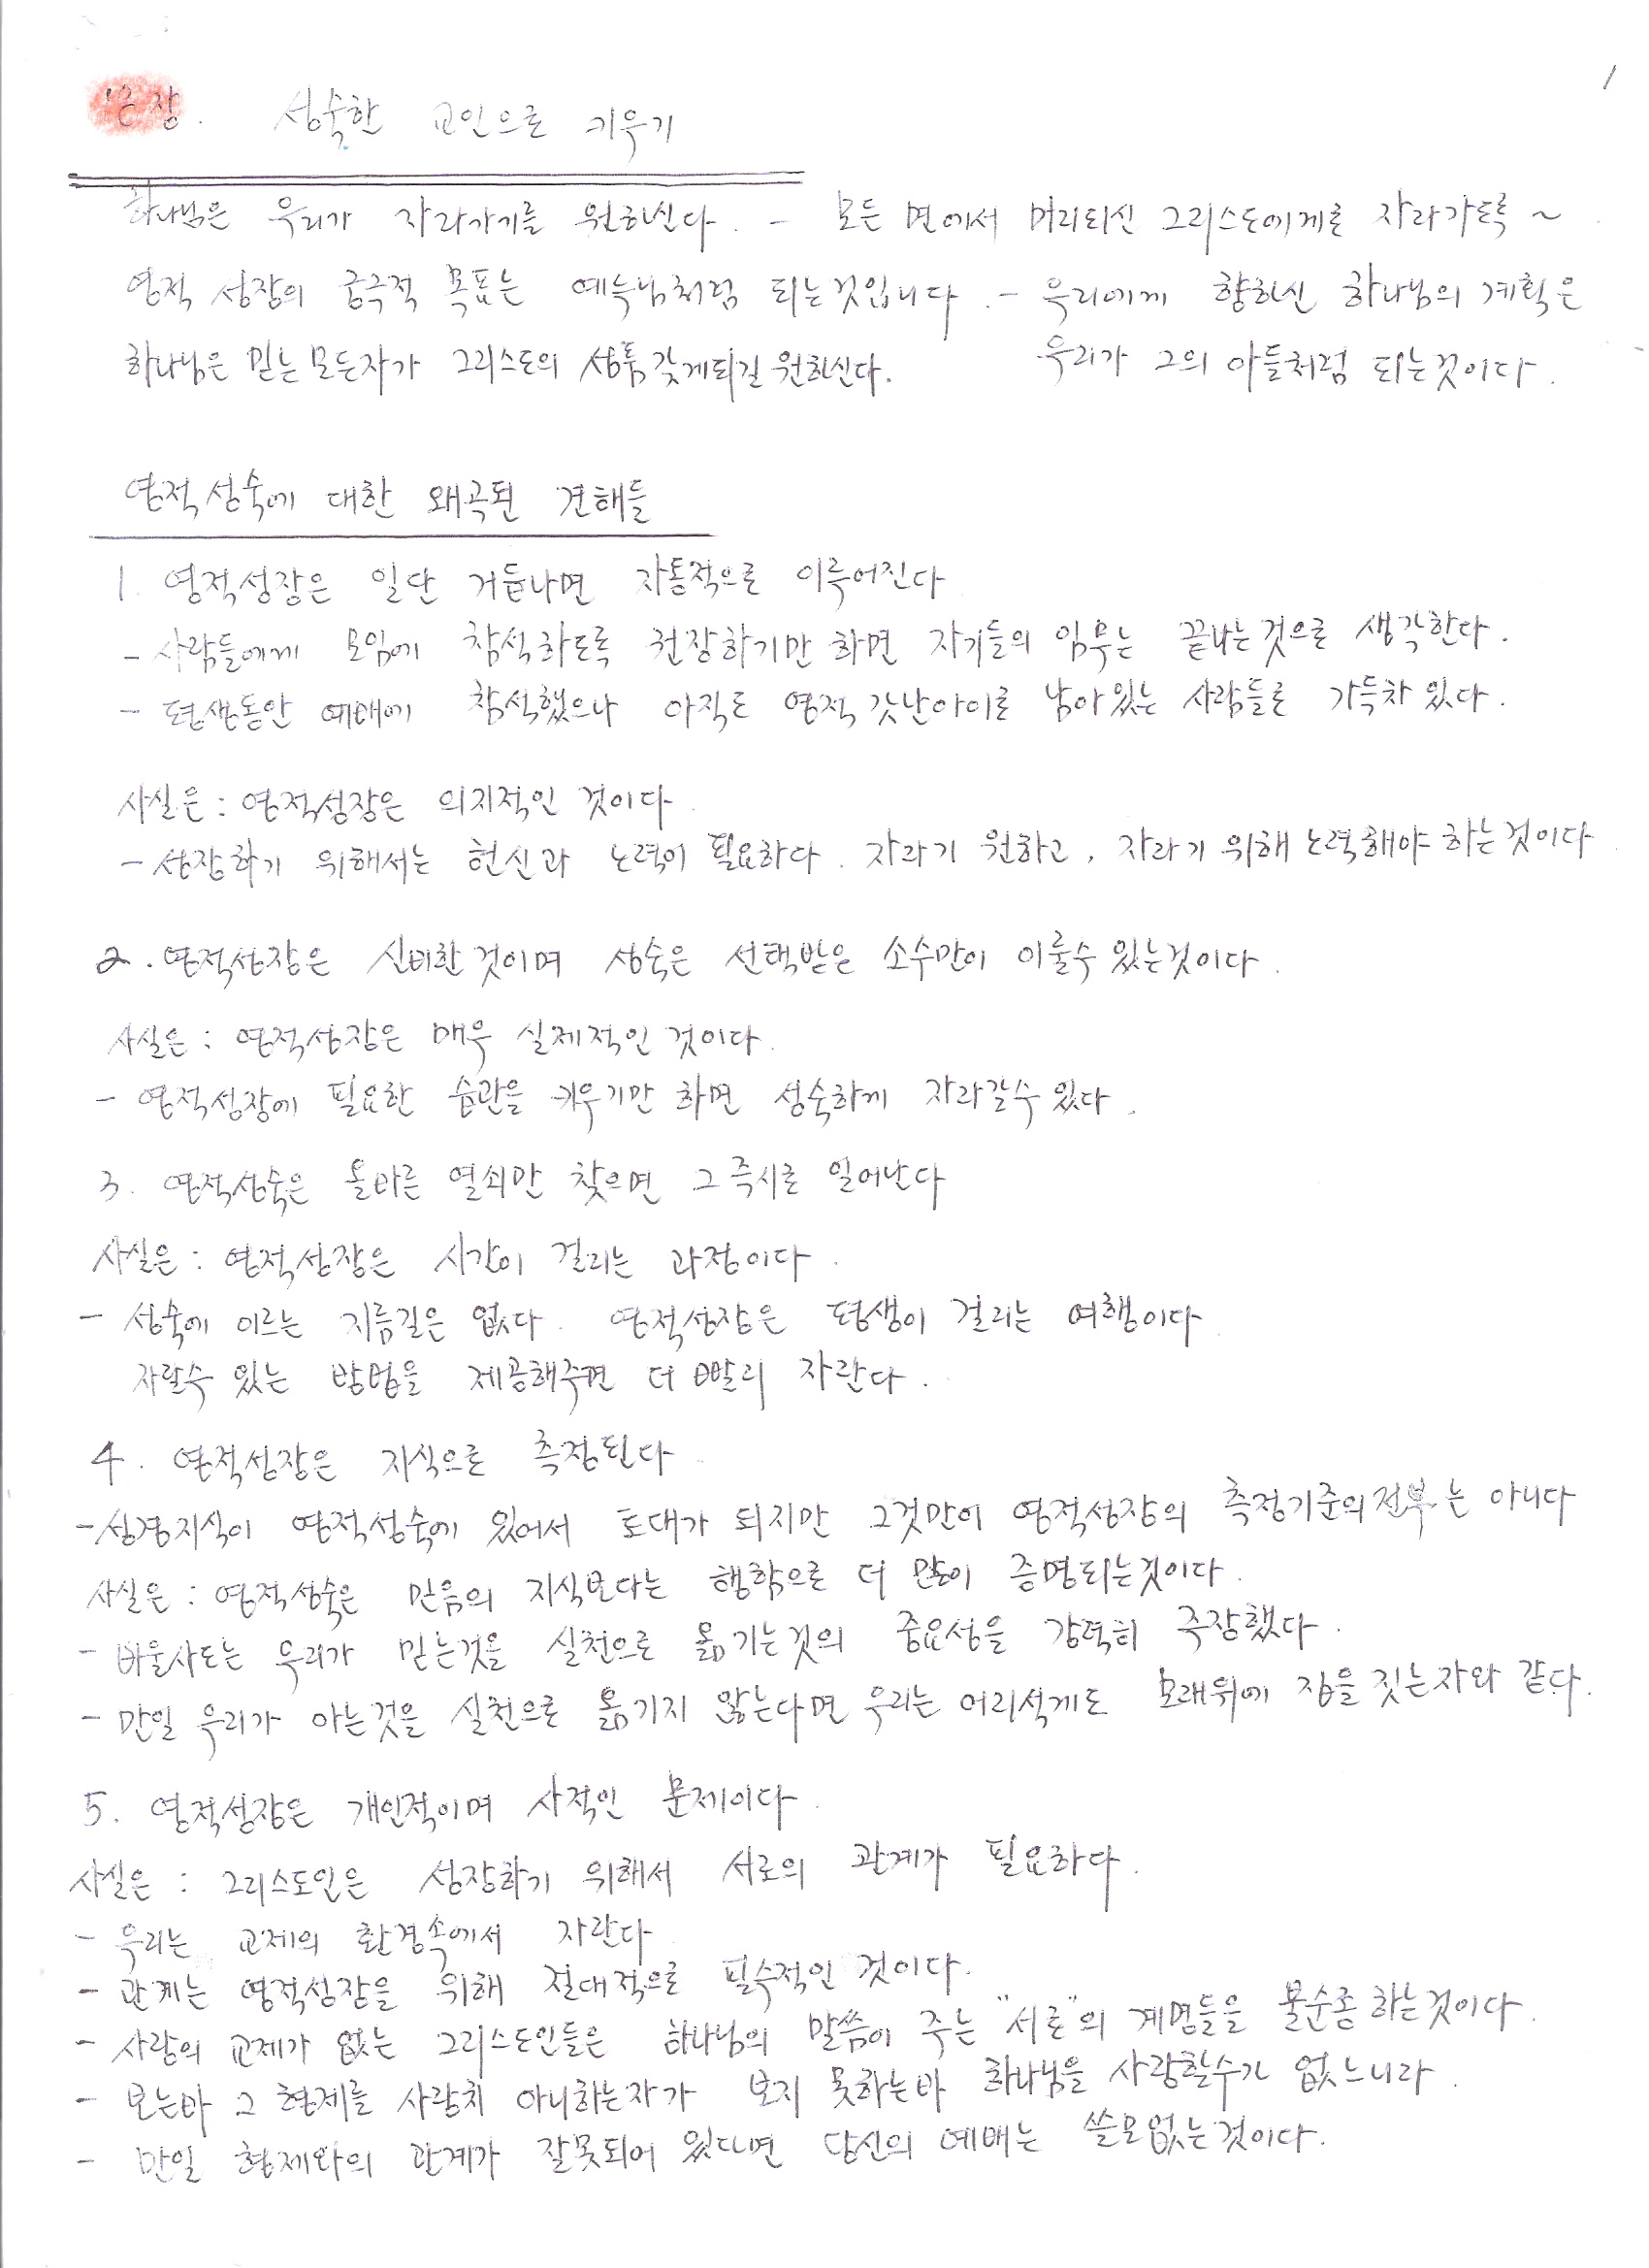 1
장. 성숙한 교인으로 키우기
하나님은 우리가 자라가기를 원하신다. - 모든 면에서 머리되신 그리스도에게로 자라가도록 ~
영적 성장의 궁극적 목표는 예수님처럼 되는것입니다. - 우리에게 향하신 하나님의 계획은
하나님은 믿는 모든자가 그리스도의 성품 갖게되길 원하신다. 우리가 그의 아들처럼 되는것이다.
영적성숙에 대한 왜곡된 견해들
1. 영적성장은 일단 거듭나면 자동적으로 이루어진다
- 사람들에게 모임에 참석하도록 권장하기만 하면 자기들의 임무는 끝나는것으로 생각한다.
- 평생동안 예배에 참석했으나 아직도 영적 갓난아이로 남아있는 사람들로 가득차 있다.
사실은 : 영적성장은 의지적인 것이다.
- 성장하기 위해서는 헌신과 노력이 필요하다. 자라기 원하고, 자라기 위해 노력해야 하는것이다.
2. 영적성장은 신비한 것이며 성숙은 선택받은 소수만이 이룰수 있는것이다.
사실은 : 영적성장은 매우 실제적인 것이다.
- 영적성장에 필요한 습관을 키우기만 하면 성숙하게 자라갈수 있다.
3. 영적성숙은 올바른 열쇠만 찾으면 그 즉시로 일어난다
사실은 : 영적성장은 시간이 걸리는 과정이다.
- 성숙에 이르는 지름길은 없다. 영적성장은 평생이 걸리는 여행이다.
자랄수 있는 방법을 제공해주면 더 빨리 자란다.
4. 영적성장은 지식으로 측정된다.
- 성경지식이 영적성숙에 있어서 토대가 되지만 그것만이 영적성장의 측정기준의 전부는 아니다
사실은 : 영적성숙은 믿음의 지식보다는 행함으로 더 많이 증명되는것이다.
- 바울사도는 우리가 믿는것을 실천으로 옮기는것의 중요성을 강력히 주장했다.
- 만일 우리가 아는것을 실천으로 옮기지 않는다면 우리는 어리석게도 모래위에 집을 짓는자와 같다.
5. 영적성장은 개인적이며 사적인 문제이다.
사실은 : 그리스도인은 성장하기 위해서 서로의 관계가 필요하다.
- 우리는 교제의 환경속에서 자란다
- 관계는 영적성장을 위해 절대적으로 필수적인 것이다.
- 사랑의 교제가 없는 그리스도인들은 하나님의 말씀이 주는 "서로"의 계명들을 불순종 하는것이다.
- 보는바 그 형제를 사랑치 아니하는자가 보지 못하는바 하나님을 사랑할수가 없느니라.
- 만일 형제와의 관계가 잘못되어 있다면 당신의 예배는 쓸모없는것이다.